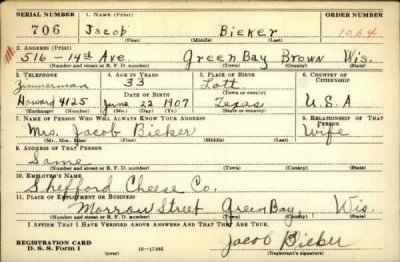 SERIAL NUMBER 1. NAME (Print) ORDER NUMBER
706 Jacob Bieker 1064
(First) (Middle) (Last)
2. ADDRESS (Print)
516 - 14th Ave. Green Bay Brown Wis.
(Number and street or R. F. D. number) (Town) (County) (State)
3. TELEPHONE 4. AGE IN YEARS 5. PLACE OF BIRTH 6. COUNTRY OF CITIZENSHIP
Zimmerman 33 Lott
DATE OF BIRTH (Town or county)
Howard 4125 June 22 1907 Texas U.S.A
(Exchange) (Number) (Mo.) (Day) (Yr.) (State or country)
7. NAME OF PERSON WHO WILL ALWAYS KNOW YOUR ADDRESS 8. RELATIONSHIP OF THAT PERSON
Mrs. Jacob Bieker Wife
(Mr., Mrs., Miss) (First) (Middle) (Last)
9. ADDRESS OF THAT PERSON
Same
(Number and street or R. F. D. number) (Town) (County) (State)
10. EMPLOYER'S NAME
Shefford Cheese Co.
11. PLACE OF EMPLOYMENT OR BUSINESS
Morrow Street Green Bay, Wis.
(Number and street or R. F. D. number) (Town) (County) (State)
I AFFIRM THAT I HAVE VERIFIED ABOVE ANSWERS AND THAT THEY ARE TRUE.
REGISTRATION CARD Jacob Bieker
D. S. S. Form 1 (over) 16-17105 (Registrant's signature)